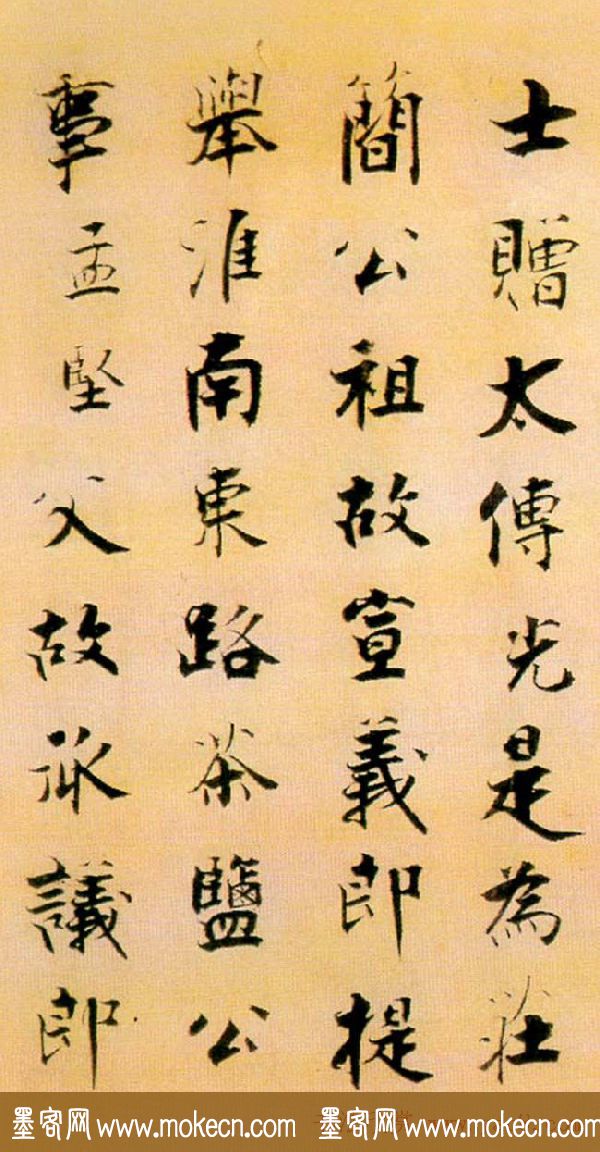 士贈太傅光是為莊
簡公祖故宣義郎提
舉淮南東路茶鹽公
事孟堅父故承議郎
墨客网 www.mokecn.com 墨客网 www.mokecn.com